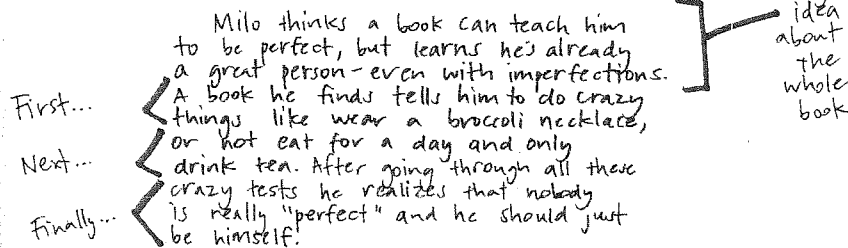 Milo thinks a book can teach him
to be perfect, but learns he's already
a great person-even with imperfections.
A book he finds tells him to do crazy
things like wear a broccoli necklace,
or not eat for a day and only
drink tea. After going through all these
crazy tests he realizes that nobody
is really "perfect" and he should just
be himself.
idea
about
the
whole
book
First...
Next...
Finally...